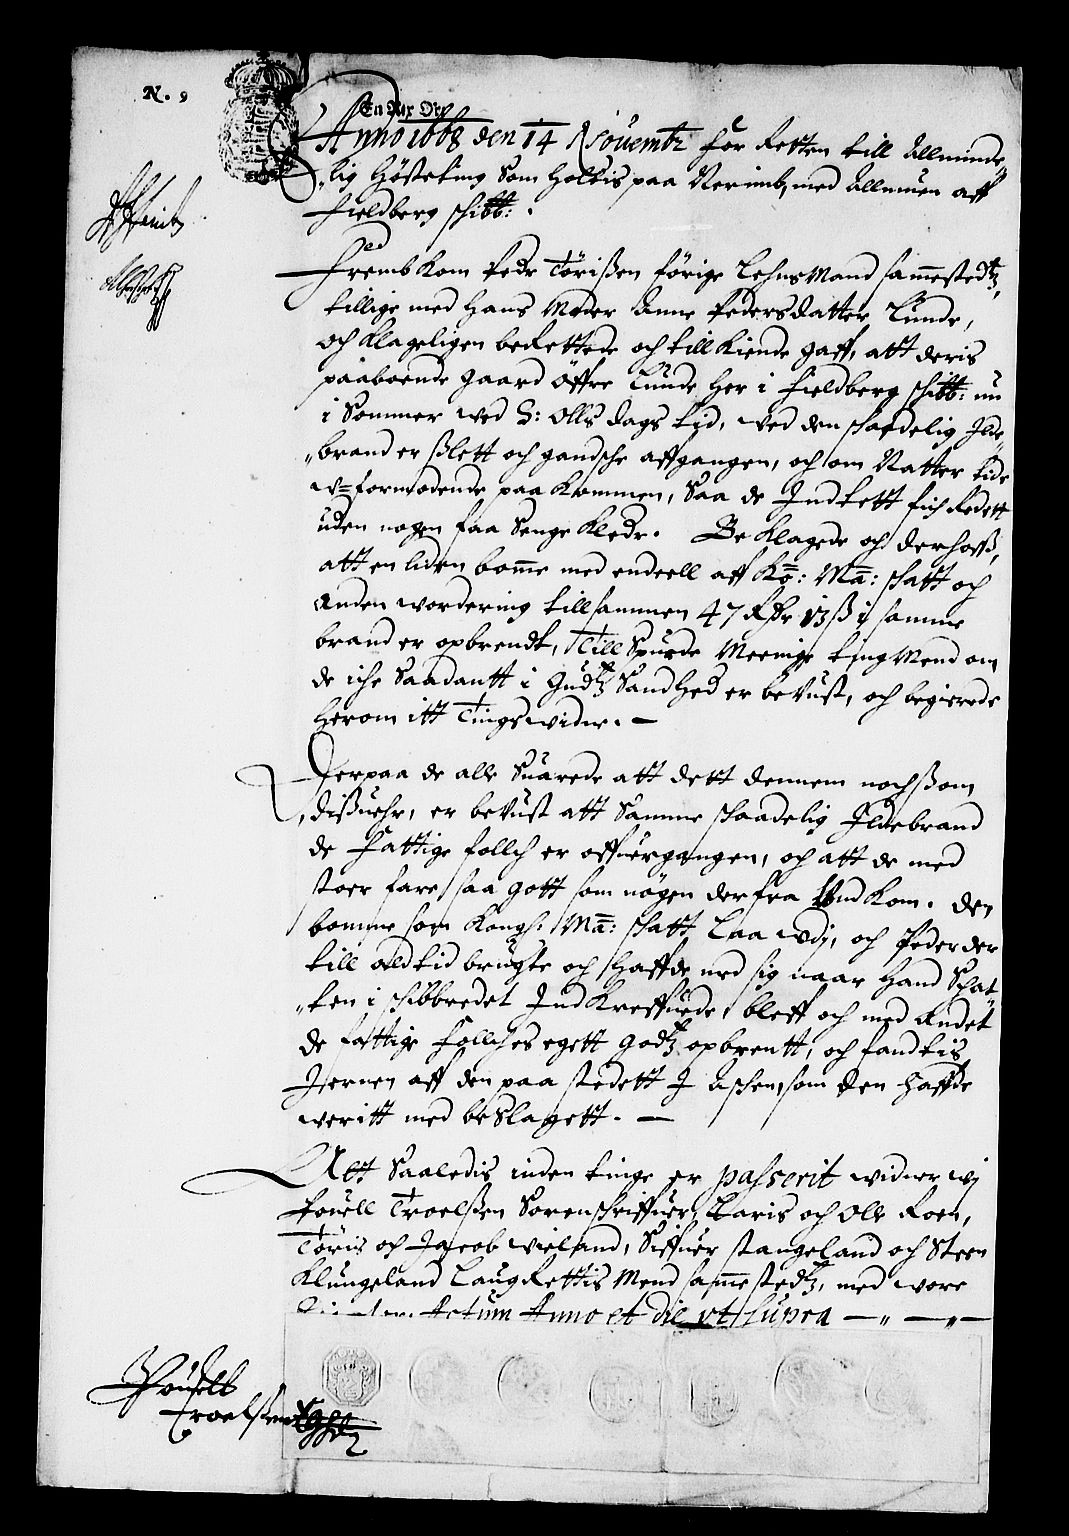 N. 9
En Rix Ort
Anno 1668 den 14 Nouembr for Retten till Allminde,,
,,lig Hösteting som holtis paa Nerimb, med Allmuen aff
Fieldberg schibb: .
Fremb kom Pedr Törißen förige Lehns Mand sammestedtz,
tillige med hans Moder Anne Pedersdatter Lunde,
och klageligen berettede och till kiende gaff, att deris
paaboende gaard öffre Lunde her i Fieldberg schibb: nu
i Sommer wed S: Olls dags tid, ved den schadelig Ilde,,
,,brand er ßlett och gandsche affgangen, och om Natter tide
w=formodende paa kommen, saa de Indtett fich Redett
uden nogen faa senge kledr. Be klagede och derhoß,
att en liden bomme med endeell aff Ko: Ma: schatt och
anden wordering tillsammen 47 Rdr 13 ß i samme
brand er opbrendt, Till spurde Meenige ting Mend om
de iche saadantt i Gudtz sandhed er beuust, och begierede
herom itt Tingswidne. —
Herpaa de alle suarede att dett dennem nochßom,
dißuehr, er beuust att samme schaadelig Ildebrand
de Fattige follch er offuergangen, och att de med
stoer fare saa gott som nögen derfra Und kom. Den
bomme som Kongl: Ma: schatt Laa udj, och Peder der
till altid brugte och haffde med sig naar hand schat,,
,,ten i schibbredet Ind kreffuede, bleff och med Andet
de fattige Follches egett godtz opbrentt, och fandtis
Jernen aff den paa stedett I Aschen, som den haffde
weritt med beslagett. —
Att saaledis inden tinge er passerit widner wj
Pouell Troelßen Sorenschriffuer, Laris och Olle Roen,
Töris och Jacob wieland, Siffuer stangeland och Steen
Klungeland Laug Rettis Mend sammestedtz, med wore
Signeter. Actum Anno et die ut supra — ,, — ,, —
Pouell
Troelßen